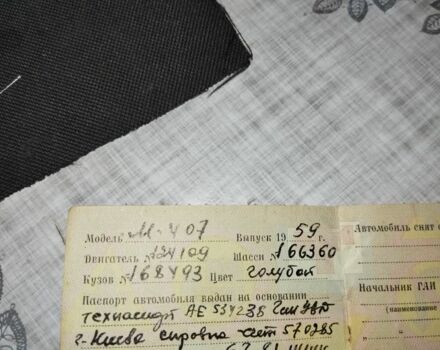 Модель М-407 Выпуск 1959 г.
Двигатель № 124109 Шасси № 166360
Кузов № 168493 Цвет голубой
Паспорт автомобиля выдан на основании
техпаспорт АЕ 554238
г. Киева справка счет 570285
Автомобиль снят с
Начальник ГАИ
(наименование